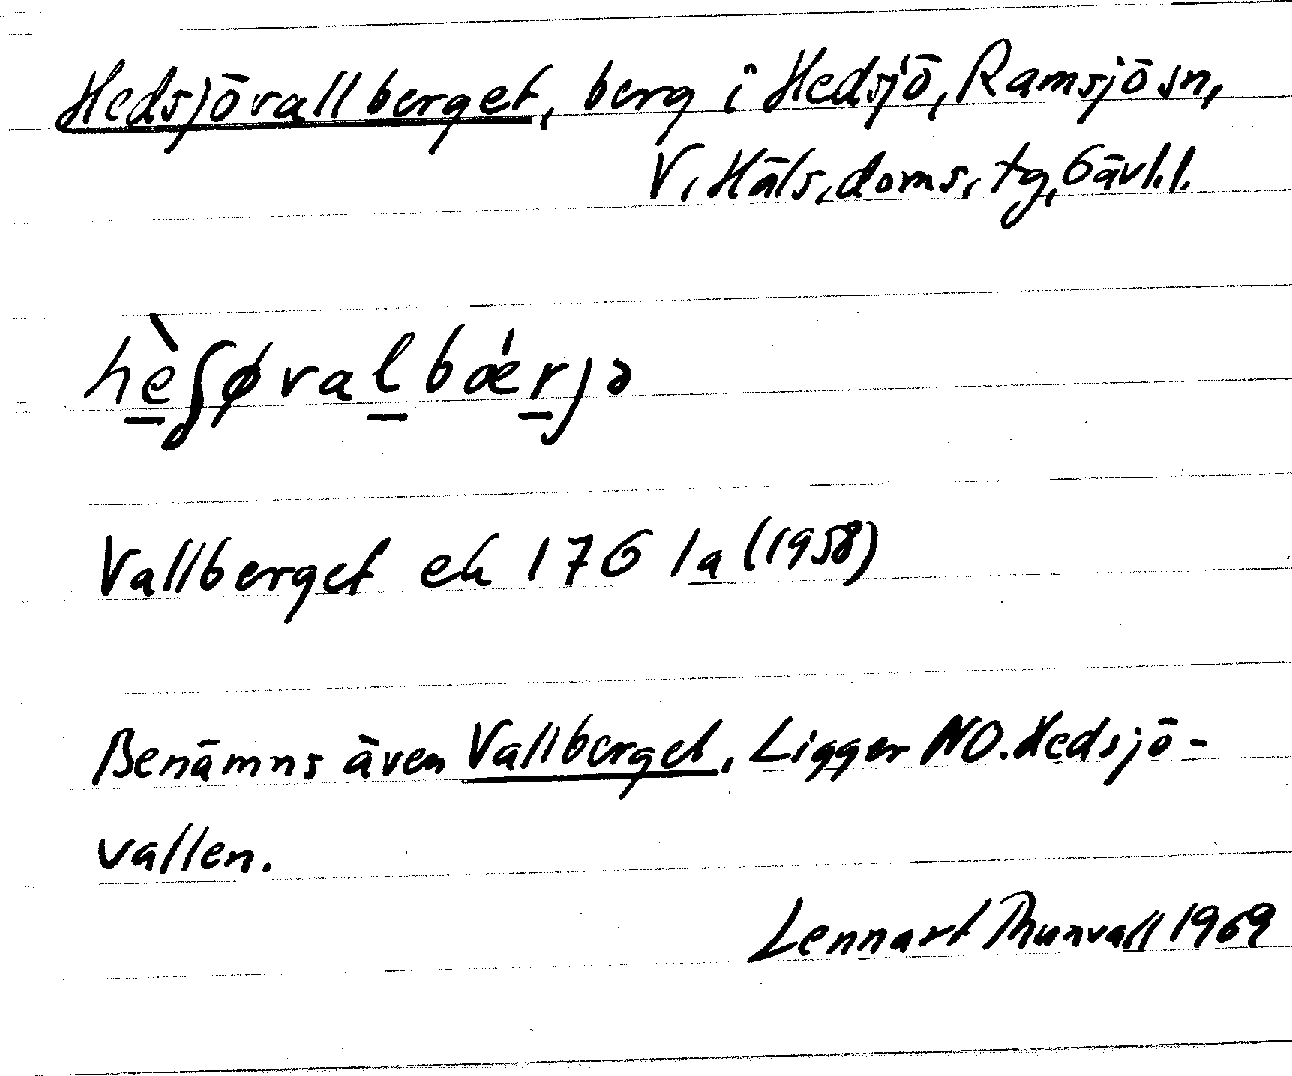 Hedsjövallberget, berg i Hedsjö, Ramsjö sn,
V. Häls. doms. tg, Gävl.l.
hèʃøvalbǽrjə
Vallberget ek 176 1a (1958)
Benämns även Vallberget. Ligger NO. Hedsjö-
vallen.
Lennart Thunvall 1969